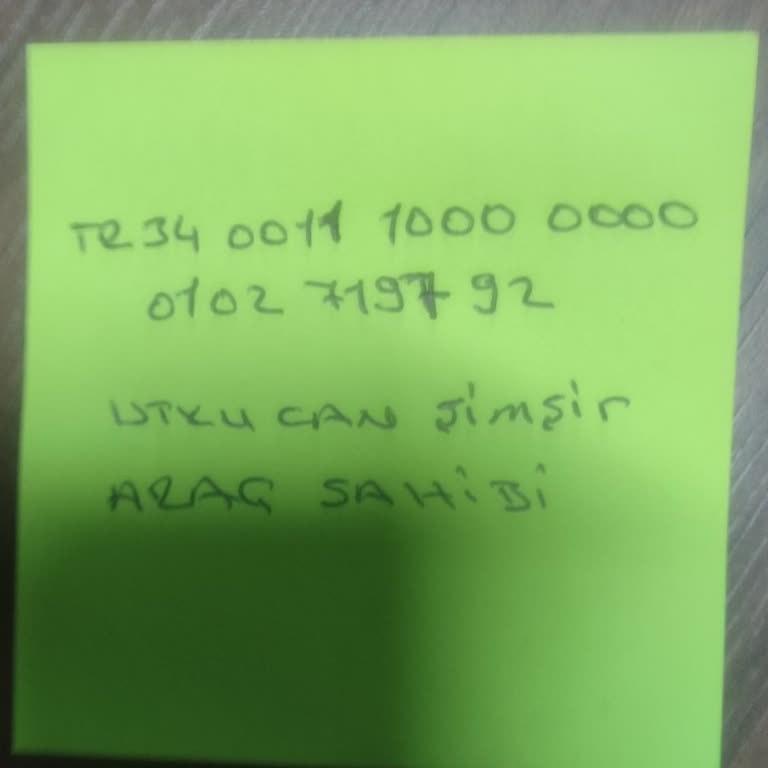 TR34 0011 1000 0000
0102 7197 92
UTKU CAN ŞİMŞİR
ARAÇ SAHİBİ